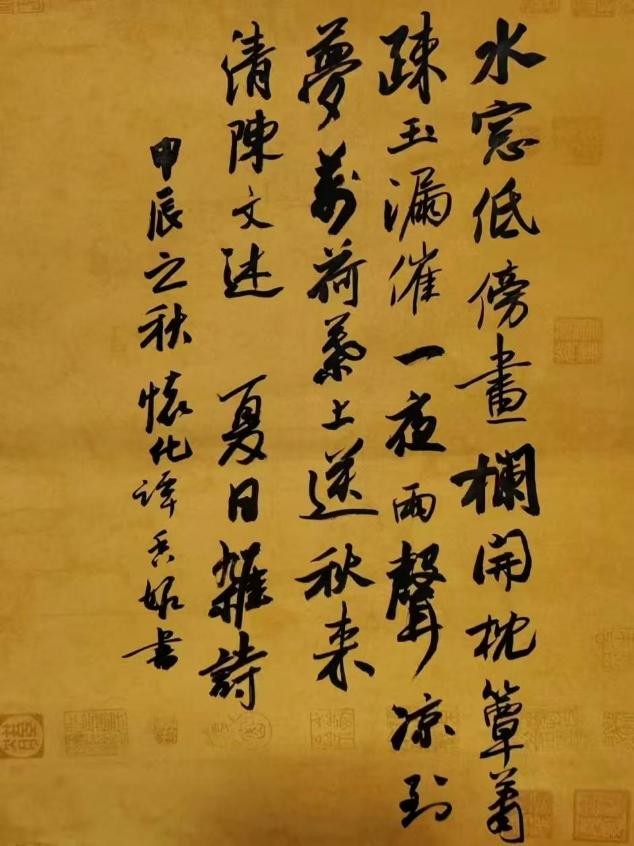 水窓低傍畫欄開枕簟蕭
疎玉漏催一夜雨聲凉到
夢萬荷葉上送秋来
清陳文述 夏日雜詩
甲辰之秋 懷化譚書